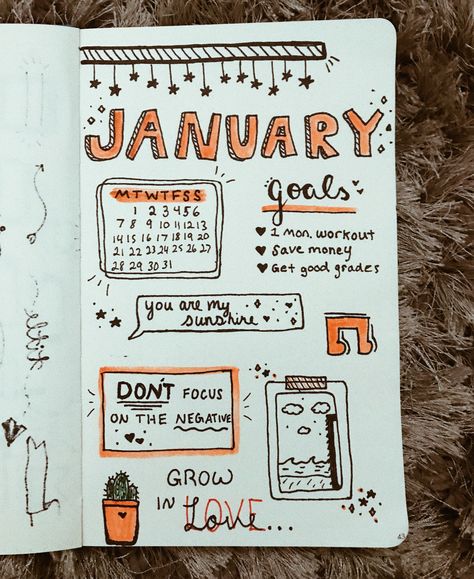 JANUARY
MTWTFSS
1 2 3 4 5 6
7 8 9 10 11 12 13
14 15 16 17 18 19 20
21 22 23 24 25 26 27
28 29 30 31
goals
1 mon. workout
Save money
Get good grades
you are my
sunshine
DON'T FOCUS
ON THE NEGATIVE
GROW
IN LOVE...
43